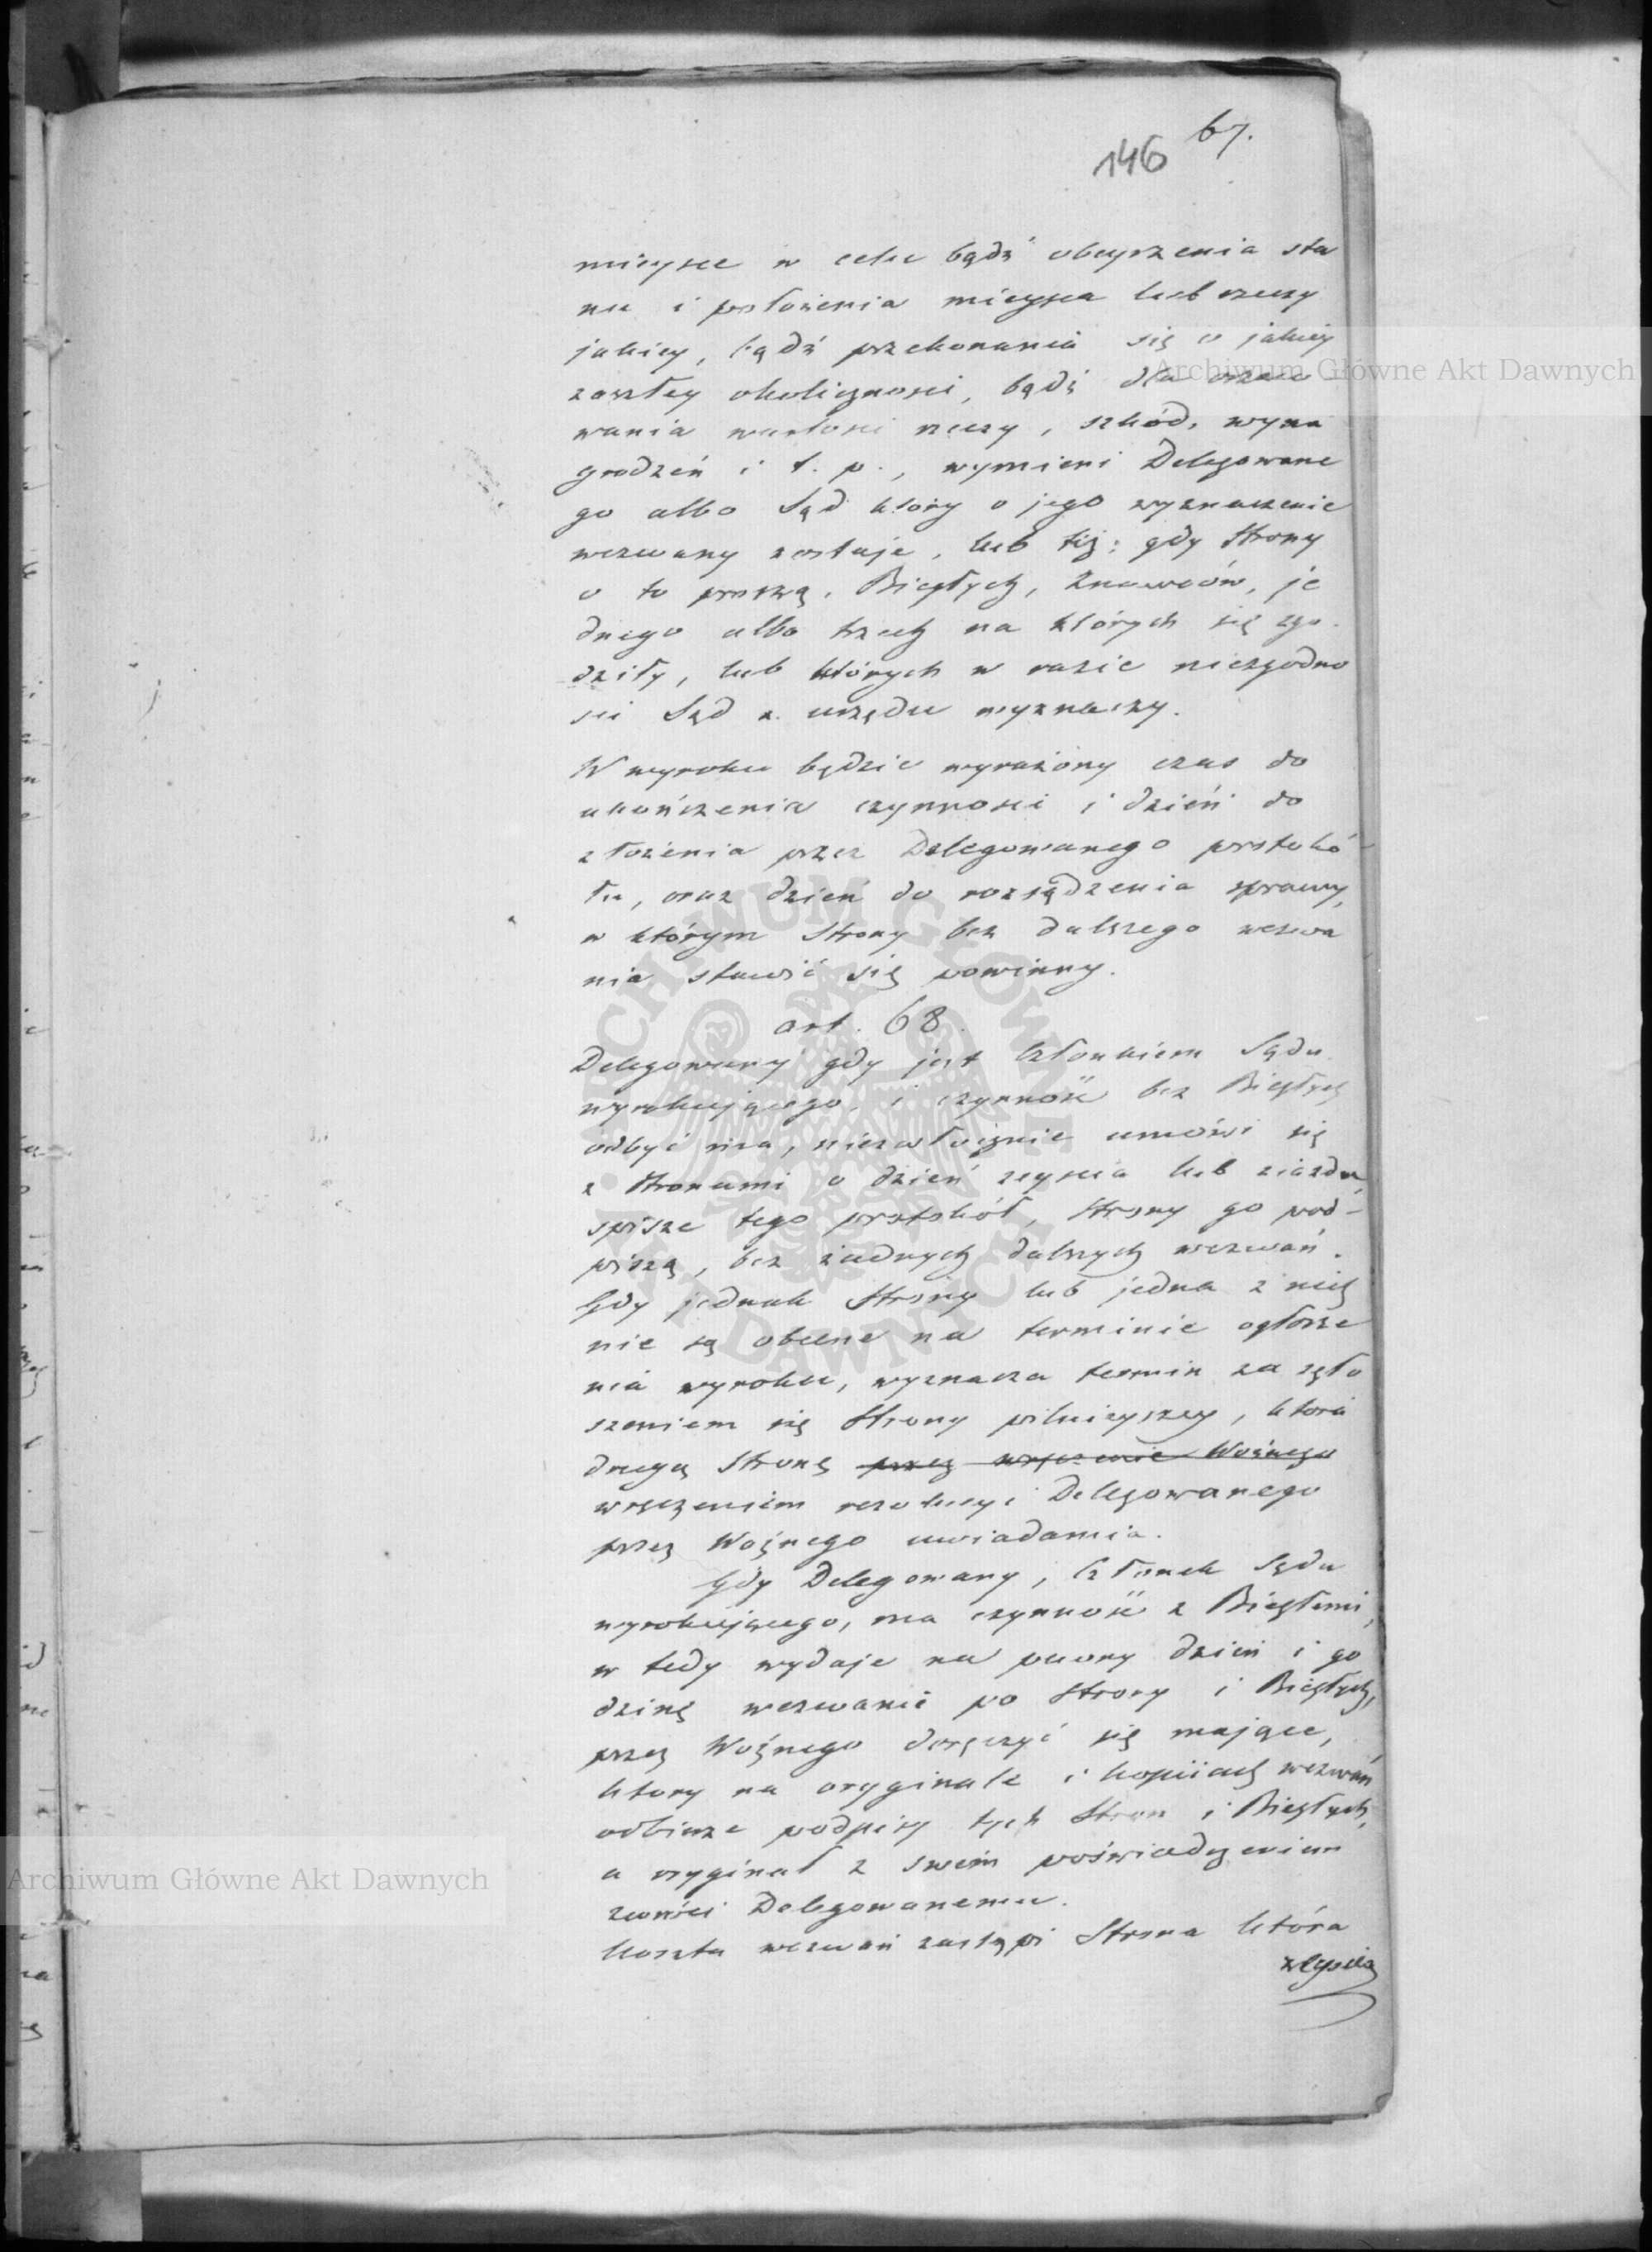 67.
146
mieysce w celu bądź obeyrzenia sta
nu i położenia mieysca lub rzeczy
jakiey, bądź przekonania się o jakiey
zaszłey okoliczności, bądź dla osza
wania wartości rzeczy, szkód, wyna
grodzeń i t. p., wymieni Delegowane
go albo Sąd który o jego wyznaczenie
wezwany zostaje, lub też: gdy Strony
o to proszą, Biegłych, Znawców, je
dnego albo trzech na których się zgo
dziły, lub których w razie niezgodno
ści Sąd z urzędu wyznaczy.
W wyroku będzie wyrażony czas do
ukończenia czynności i dzień do
złożenia przez Delegowanego protokó
łu, oraz dzień do rozsądzenia sprawy,
w którym Strony bez dalszego wezwa
nia stawić się powinny.
art. 68.
Delegowany gdy jest Członkiem Sądu
wyrokującego, i czynność bez Biegłych
odbyć ma, niezwłocznie umówi się
z Stronami o dzień zeyścia lub ziazdu
spisze tego protokół, strony go pod-
piszą, bez żadnych dalszych wezwań.
Gdy jednak Strony lub jedna z nich
nie są obecne na terminie ogłosze
nia wyroku, wyznacza termin za zgło
szeniem się Strony pilnieyszey, która
drugą Stronę przez wręczenie Woźnego
wręczeniem rezolucyi Delegowanego
przez Woźnego uwiadamia.
Gdy Delegowany, Członek Sądu
wyrokującego, ma czynność z Biegłemi,
w tedy wydaje na pewny dzień i go
dzinę wezwanie po Strony i Biegłych,
przez Woźnego doręczyć się mające,
który na oryginale i kopiiach wezwań
odbierze podpisy tych Stron i Biegłych,
a oryginał z swém poświadczeniem
zwróci Delegowanemu.
Koszta wezwań zastąpi Strona która
Archiwum Główne Akt Dawnych
Archiwum Główne Akt Dawnych
ARCHIWUM GŁÓWNE AKT DAWNYCH